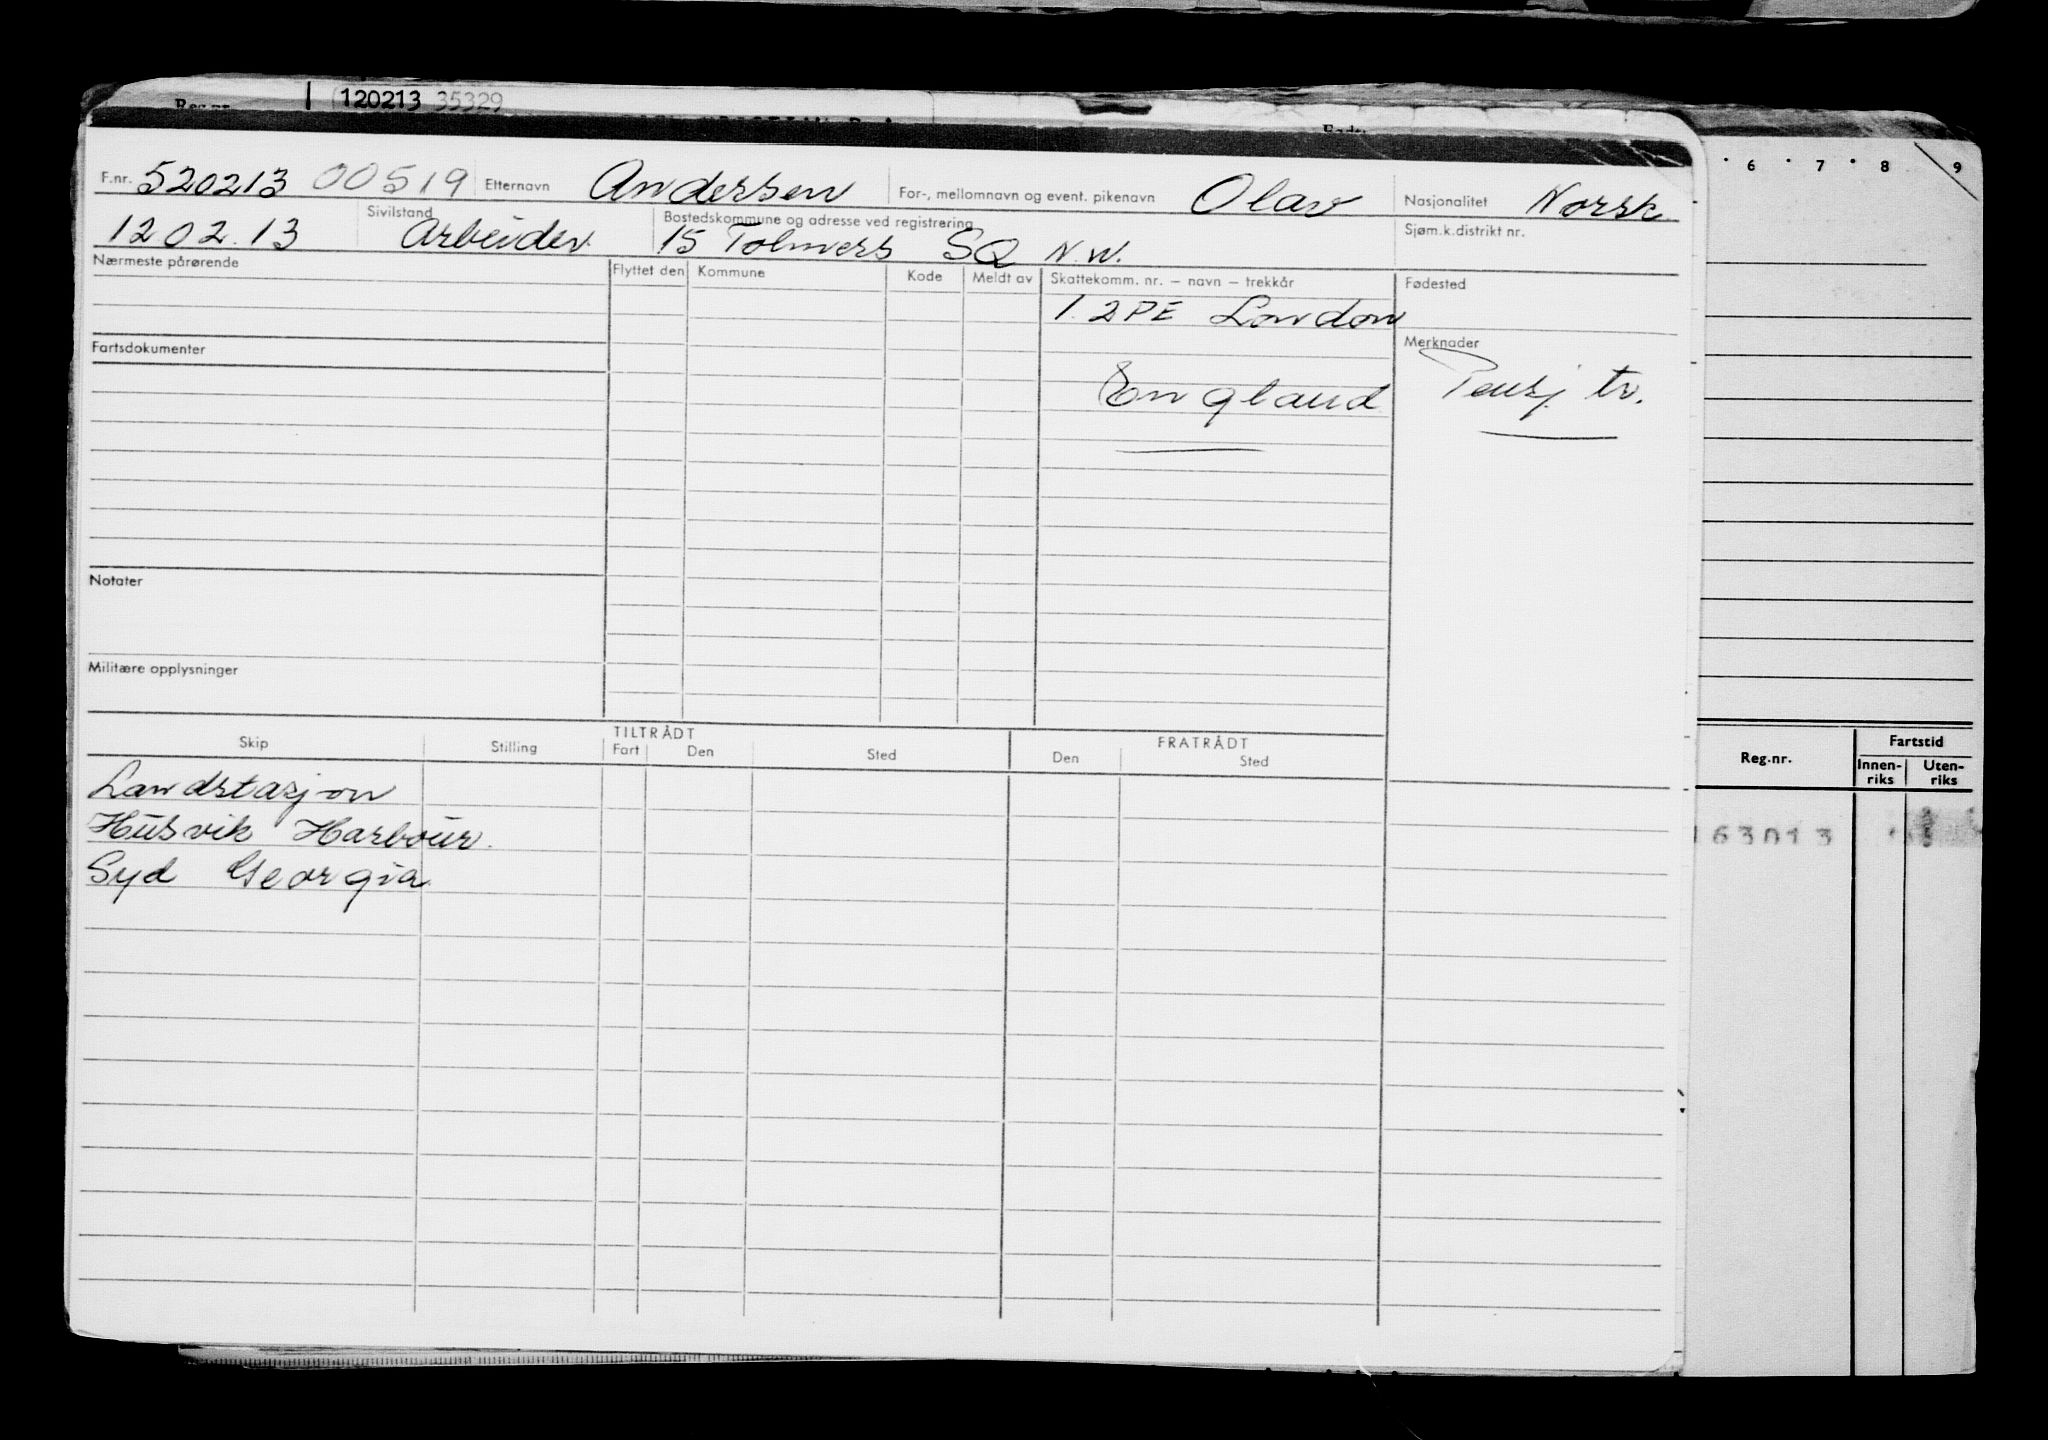 120213 35329
6 7 8 9
F.nr. 520213 00519 Etternavn Andersen For-, mellomnavn og event. pikenavn Olav Nasjonalitet Norsk
120213 Sivilstand Arbeider Bostedskommune og adresse ved registrering 15 Tolmers SQ N.W. Sjøm.k.distrikt nr.
Nærmeste pårørende Flyttet den Kommune Kode Meldt av Skattekomm. nr. – navn – trekkår Fødested
1.2PE London
Fartsdokumenter Merknader
England Pensj. tr.
Notater
Militære opplysninger
TILTRÅDT FRATRÅDT
Skip Stilling Fart Den Sted Den Sted
Reg.nr. Fartstid
Innen-riks Uten-riks
Landstasjon
Husvik Harbour.
63013
Syd Georgia